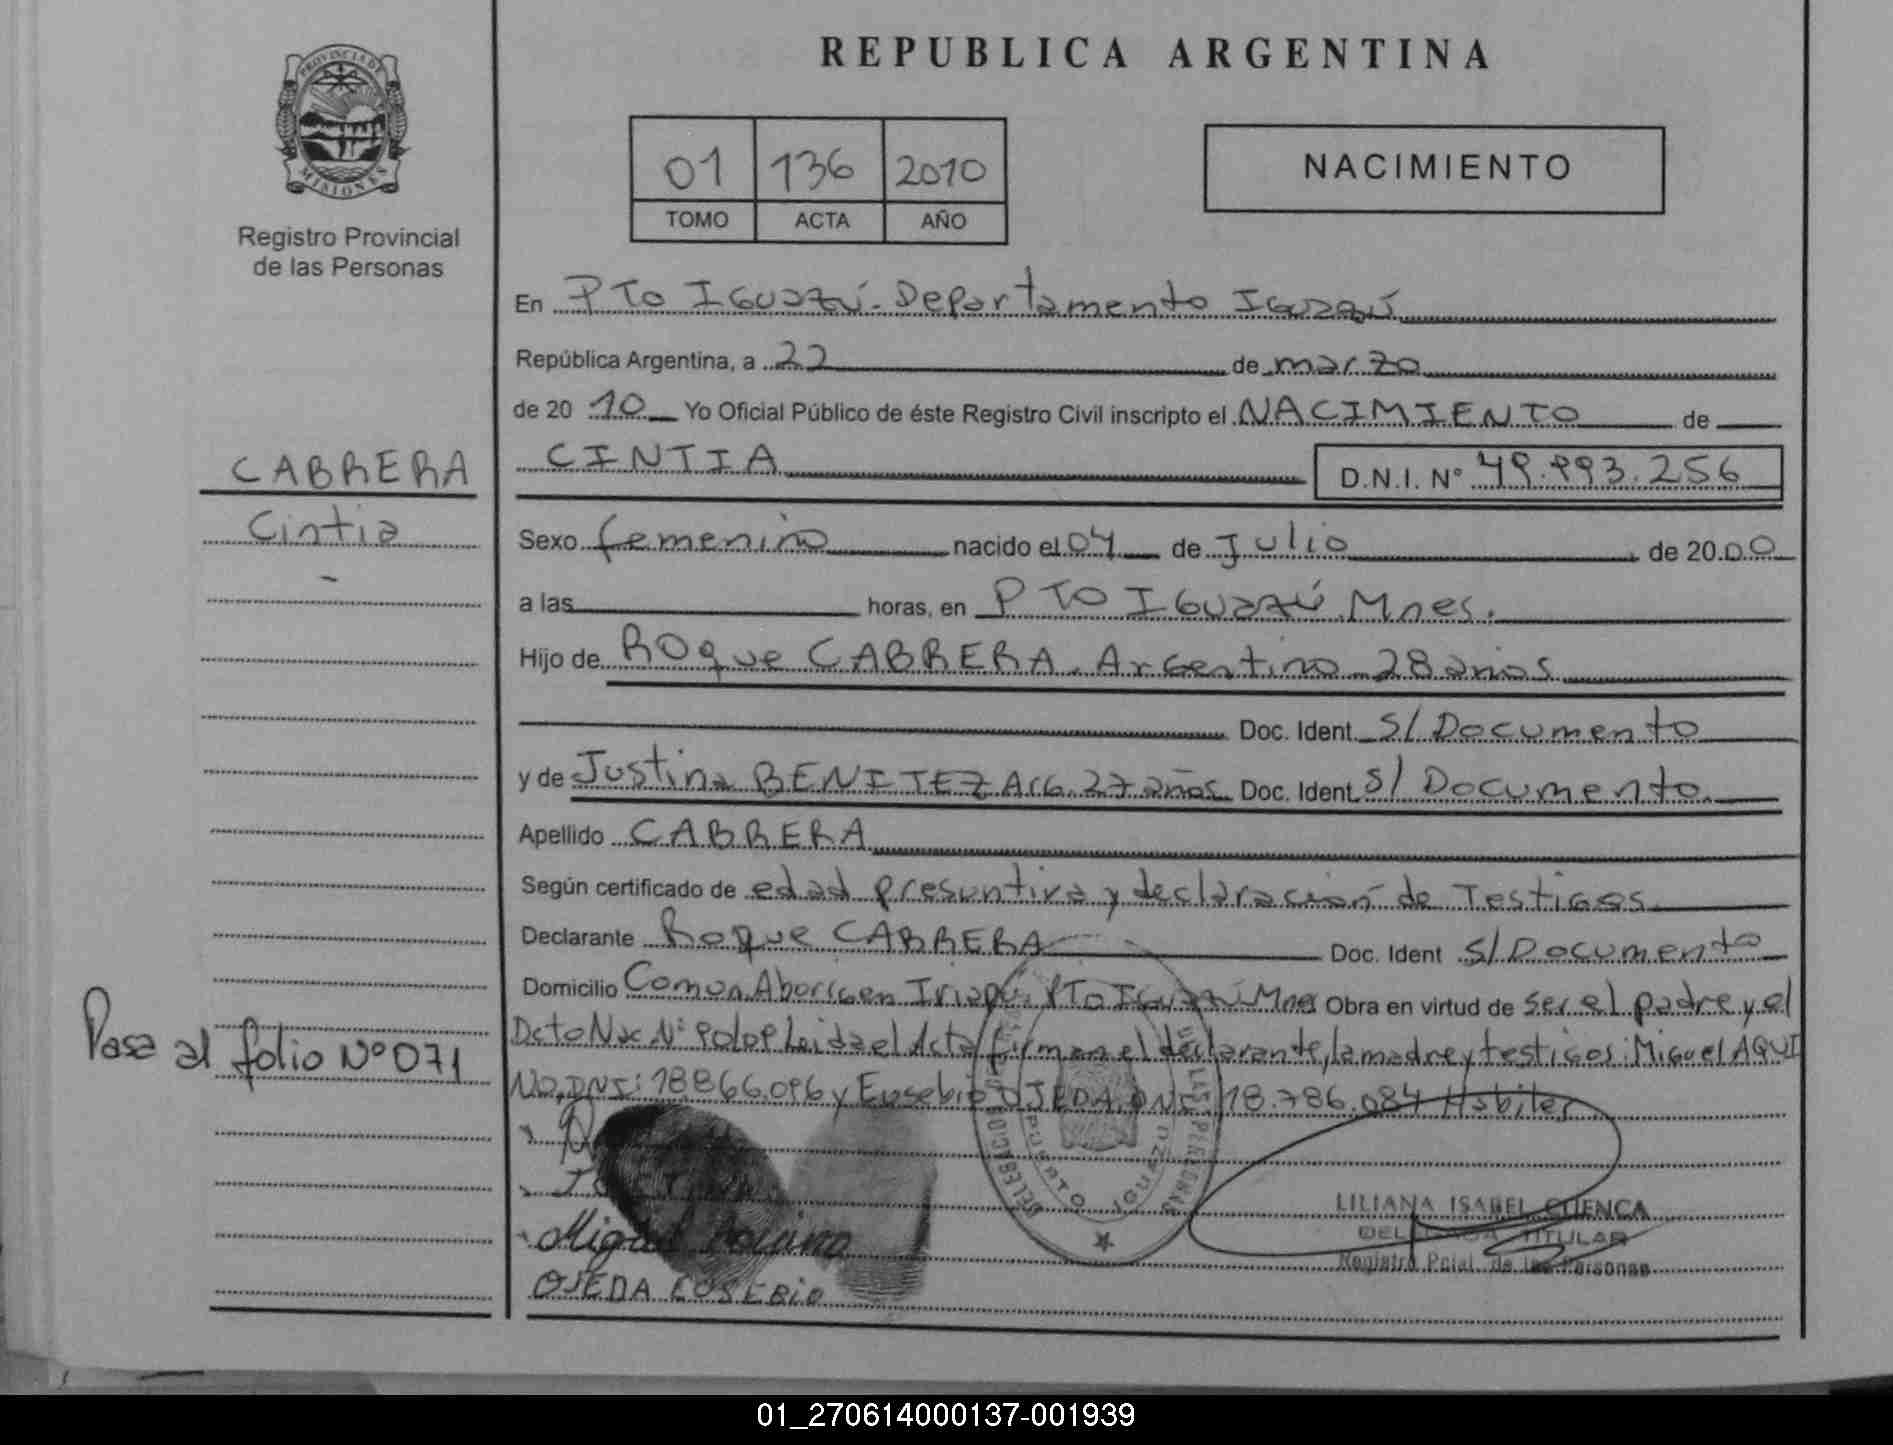 REPUBLICA ARGENTINA
PROVINCIA DE
MISIONES
Registro Provincial
de las Personas
01 136 2010
TOMO ACTA AÑO
NACIMIENTO
En PTO IGUAZÚ. Departamento IGUAZÚ
República Argentina, a 22 de marzo
de 20 10 Yo Oficial Público de éste Registro Civil inscripto el NACIMIENTO de
CINTIA D.N.I. Nº 49.993.256
CABRERA
Cintia
Sexo femenino nacido el 04 de Julio de 20.00
a las horas, en PTO IGUAZÚ. Mnes.
Hijo de ROque CABRERA. Argentino 28 años
Doc. Ident. S/ Documento
y de Justina BENITEZ ARG. 27 años Doc. Ident. S/ Documento.
Apellido CABRERA
Según certificado de edad presuntiva y declaración de Testigos
Declarante Roque CABRERA Doc. Ident S/ Documento
Domicilio Comun. Aborigen Iriapú. PTO IGuazú Mnes Obra en virtud de ser el padre y el
Dcto Nac. Nº 90/09 Leida el Acta firman el declarante, la madre y testigos: Miguel AQUI
NO, DNI: 18.866.096 y Eusebio OJEDA DNI: 18.786.084 Habiter
Pasa al folio Nº 071
PUERTO IGUAZU
LAS PERSONAS
Miguel Aquino
OJEDA EUSEBIO
LILIANA ISABEL CUENCA
DELEGADA TITULAR
Registro Pcial. de las Personas
01_270614000137-001939